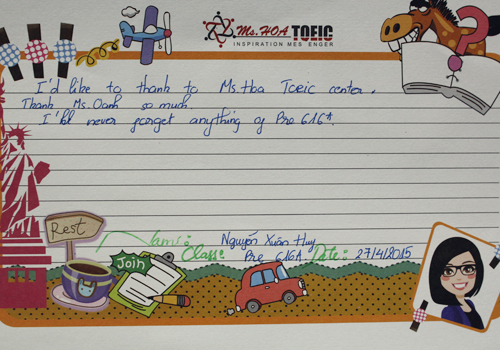 Ms.HOA TOEIC
INSPIRATION MES ENGER
?
I'd like to thank to Ms.Hoa Toeic center.
Thank Ms.Oanh so much.
I'll never forget anything of Pre 616A.
Rest
Name: Nguyễn Xuân Huy
Join
Class: Pre 616A Date: 27/4/2015